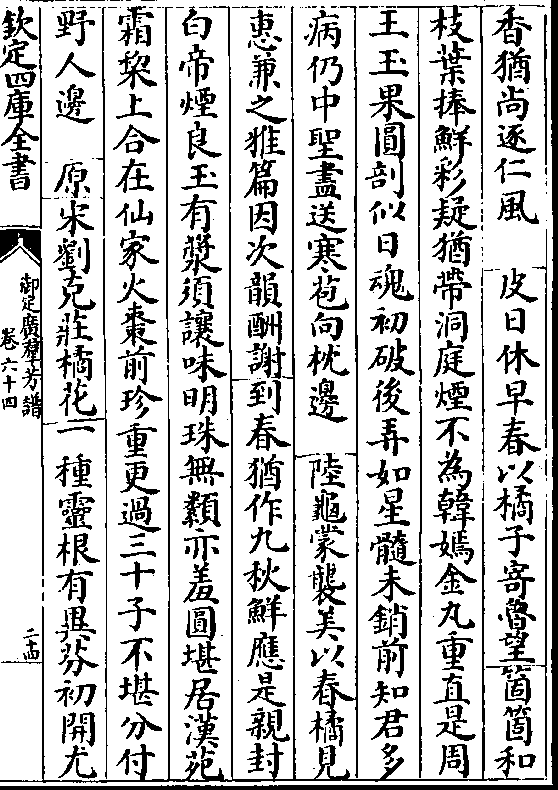 香猶尚逐仁風　皮日休早春以橘子寄魯望箇箇和
枝葉捧鮮彩疑猶帶洞庭煙不為韓嫣金丸重直是周
王玉果圓剖似日魂初破後弄如星髓未銷前知君多
病仍中聖盡送寒苞向枕邊　陸龜蒙襲美以春橘見
惠兼之雅篇因次韻酬謝到春猶作九秋鮮應是親封
白帝煙良玉有漿須讓味明珠無纇亦羞圓堪居漢苑
霜棃上合在仙家火棗前珍重更過三十子不堪分付
野人邊　原宋劉克莊橘花一種靈根有異芬初開尤
欽定四庫全書
御定廣羣芳譜
卷六十四
二十四